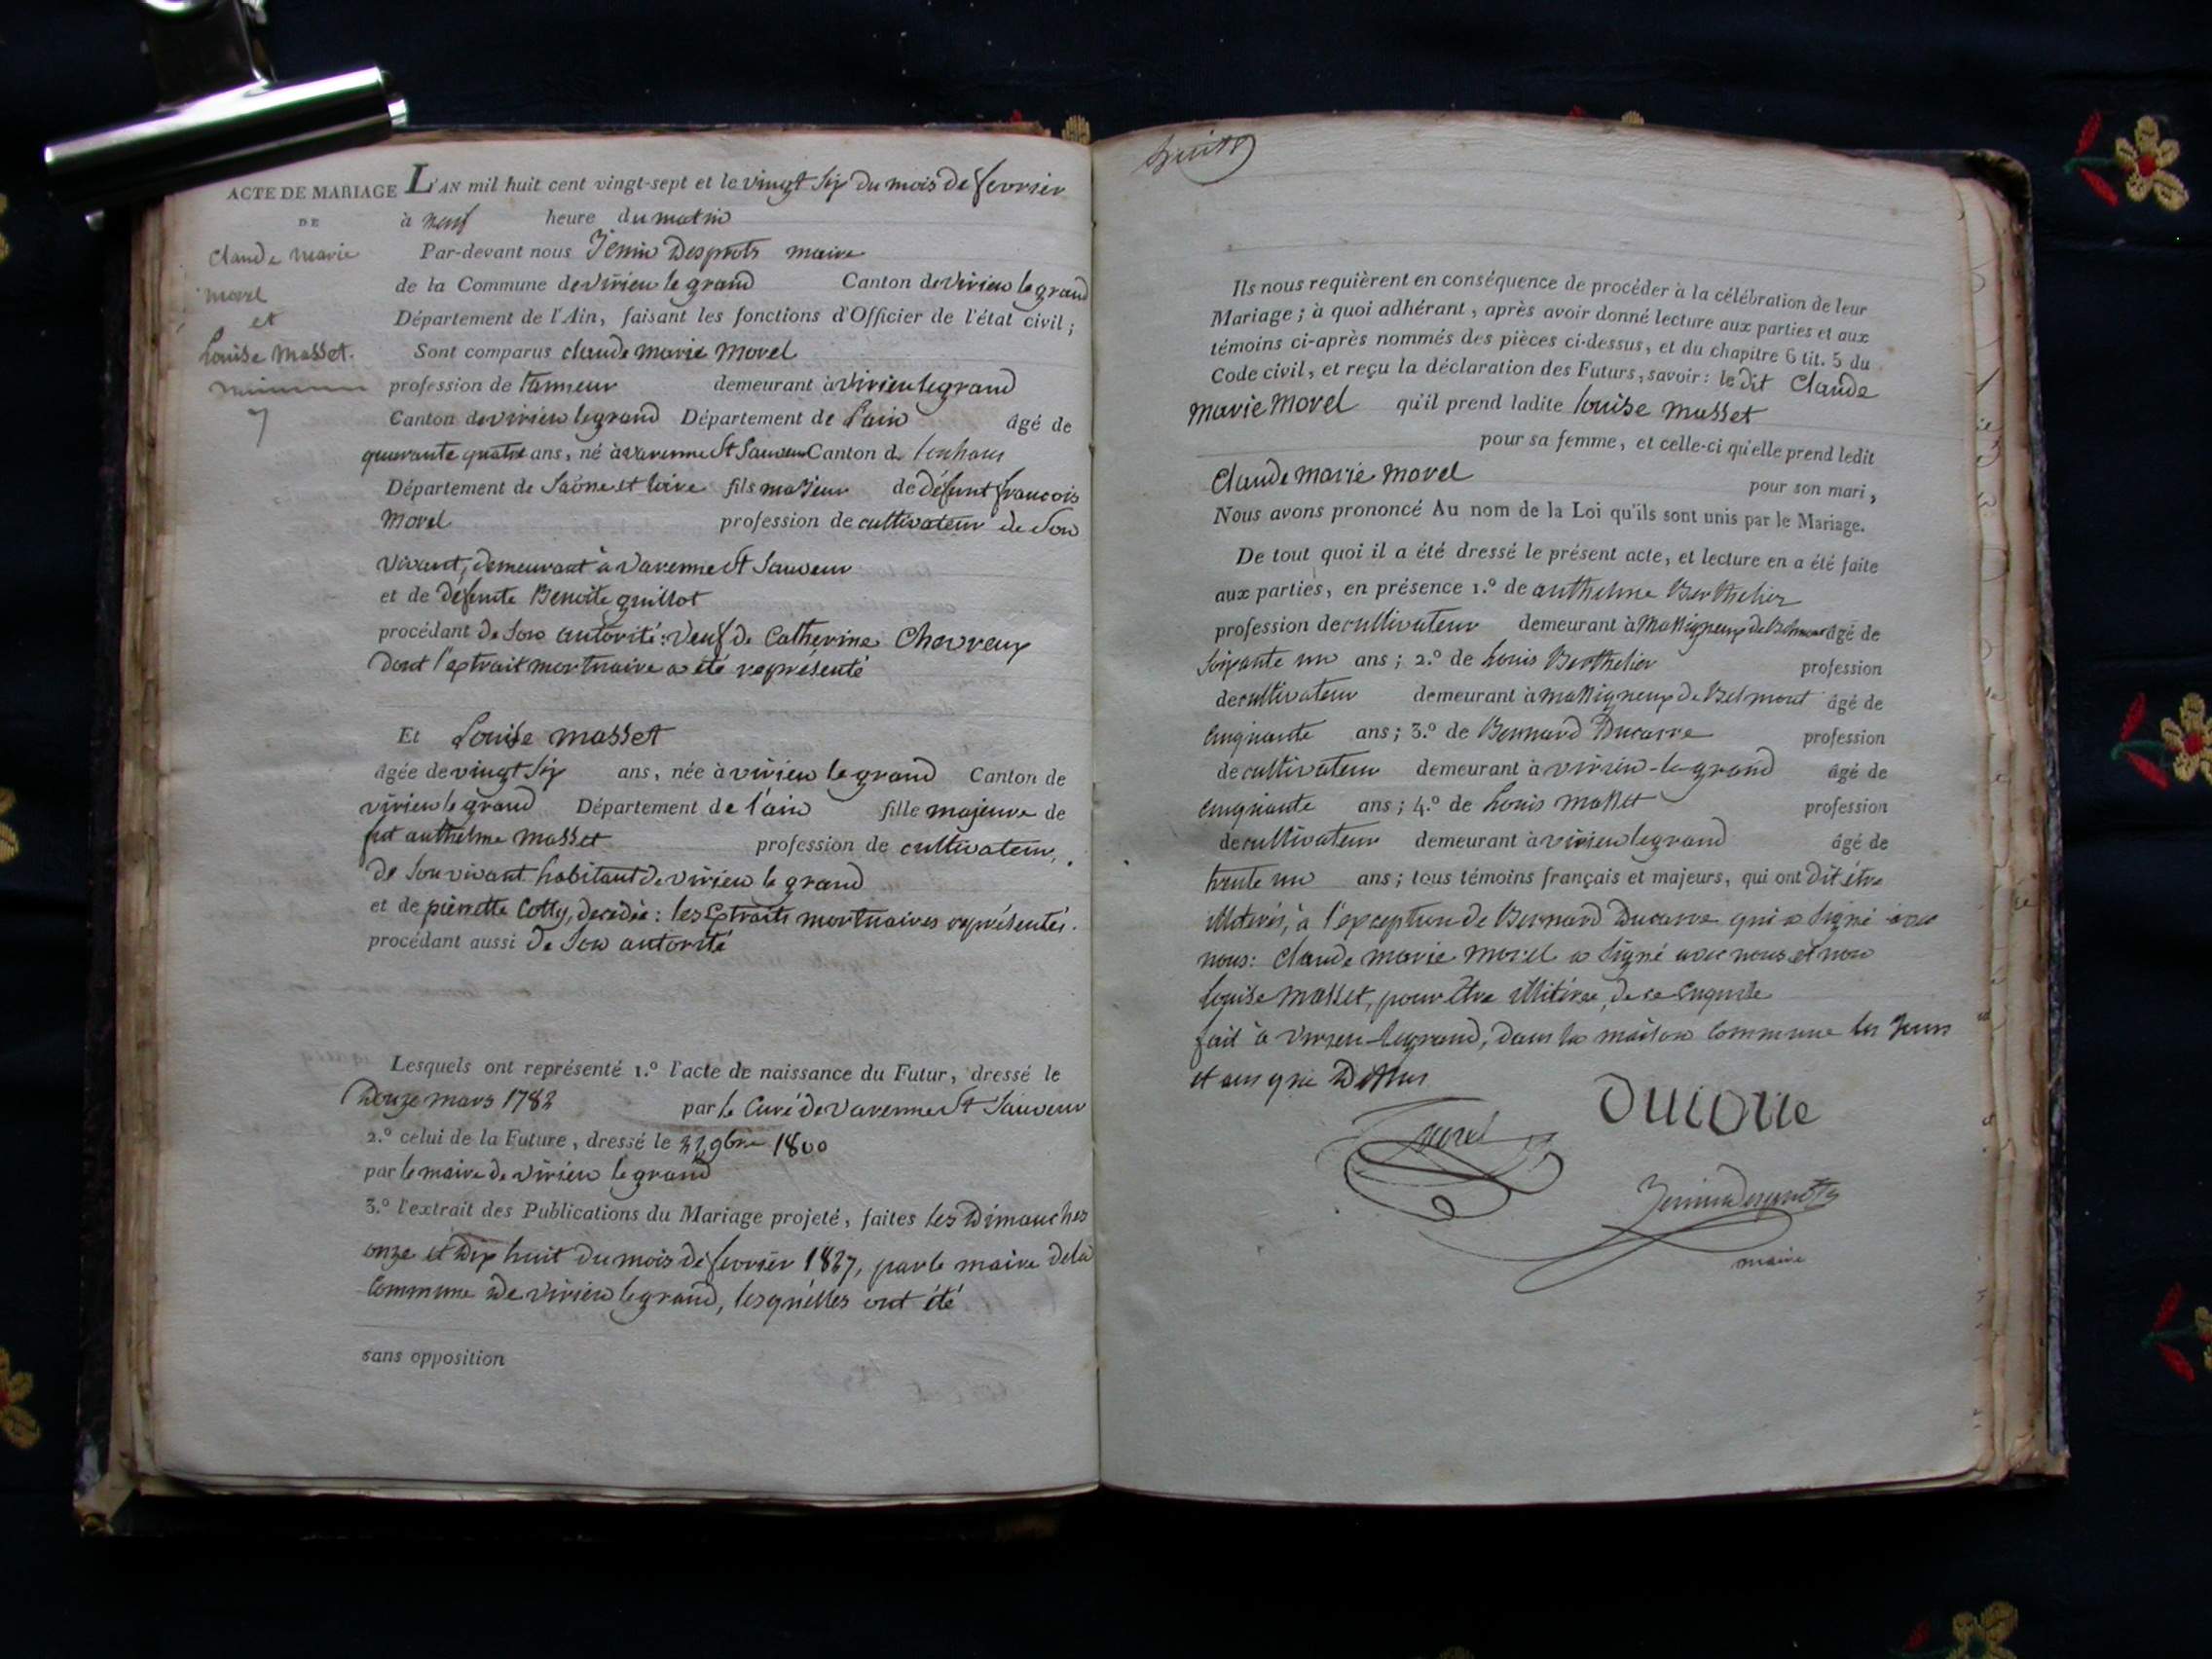 ACTE DE MARIAGE
DE
Claude Marie
Morel
et
Louise Masset.
7
L'AN mil huit cent vingt-sept et le vingt six du mois de fevrier
à neuf heure du matin
Par-devant nous Jenin Desprots maire
de la Commune de virieu le grand Canton de virieu le grand
Département de l'Ain, faisant les fonctions d'Officier de l'état civil;
Sont comparus claude marie Morel
profession de tanneur demeurant à virieu le grand
Canton de virieu le grand Département de l'ain âgé de
quarante quatre ans, né à varenne St Sauveur Canton de
Département de Saône et loire fils majeur de défunt francois
Morel profession de cultivateur de Son
vivant, demeurant à varenne St Sauveur
et de defunte Benoite guillot
procédant de son autorité: veuf de Catherine Chevreux
dont l'extrait mortuaire a été représenté
Et Louise masset
âgée de vingt six ans, née à virieu le grand Canton de
virieu le grand Département de l'ain fille majeure de
fut anthelme masset profession de cultivateur,
de son vivant habitant de virieu le grand
et de pierrette Cotty, decedée: les Extraits mortuaires représentés.
procédant aussi de son autorité
Lesquels ont représenté 1.º l'acte de naissance du Futur, dressé le
Douze mars 1782 par le Curé de varenne St Sauveur
2.º celui de la Future, dressé le 9bre 1800
par le maire de virieu le grand
3.º l'extrait des Publications du Mariage projeté, faites les Dimanches
onze et dix huit du mois de fevrier 1827, par le maire de la
Commune de virieu le grand, lesquelles ont été
sans opposition
Ils nous requièrent en conséquence de procéder à la célébration de leur
Mariage; à quoi adhérant, après avoir donné lecture aux parties et aux
témoins ci-après nommés des pièces ci-dessus, et du chapitre 6 tit. 5 du
Code civil, et reçu la déclaration des Futurs, savoir: le dit Claude
Marie Morel qu'il prend ladite Louise masset
pour sa femme, et celle-ci qu'elle prend ledit
Claude Marie Morel pour son mari,
Nous avons prononcé Au nom de la Loi qu'ils sont unis par le Mariage.
De tout quoi il a été dressé le présent acte, et lecture en a été faite
aux parties, en présence 1.º de anthelme Berthelier
profession de cultivateur demeurant à Massigneux de Belmont âgé de
soixante un ans; 2.º de Louis Berthelier profession
de cultivateur demeurant à massigneux de Belmont âgé de
cinquante ans; 3.º de Bernard Ducarre profession
de cultivateur demeurant à virieu-le-grand âgé de
cinquante ans; 4.º de Louis Masset profession
de cultivateur demeurant à virieu le grand âgé de
trente un ans; tous témoins français et majeurs, qui ont dit être
illiterés, à l'exception de Bernard Ducarre qui a signé avec
nous: Claude marie morel a signé avec nous et non
Louise Masset, pour être illitérée, de ce Enquise
fait à virieu-le-grand, dans la maison commune les jours
et an que Dessus
Ducarre
Morel
Jenin Desprots
maire